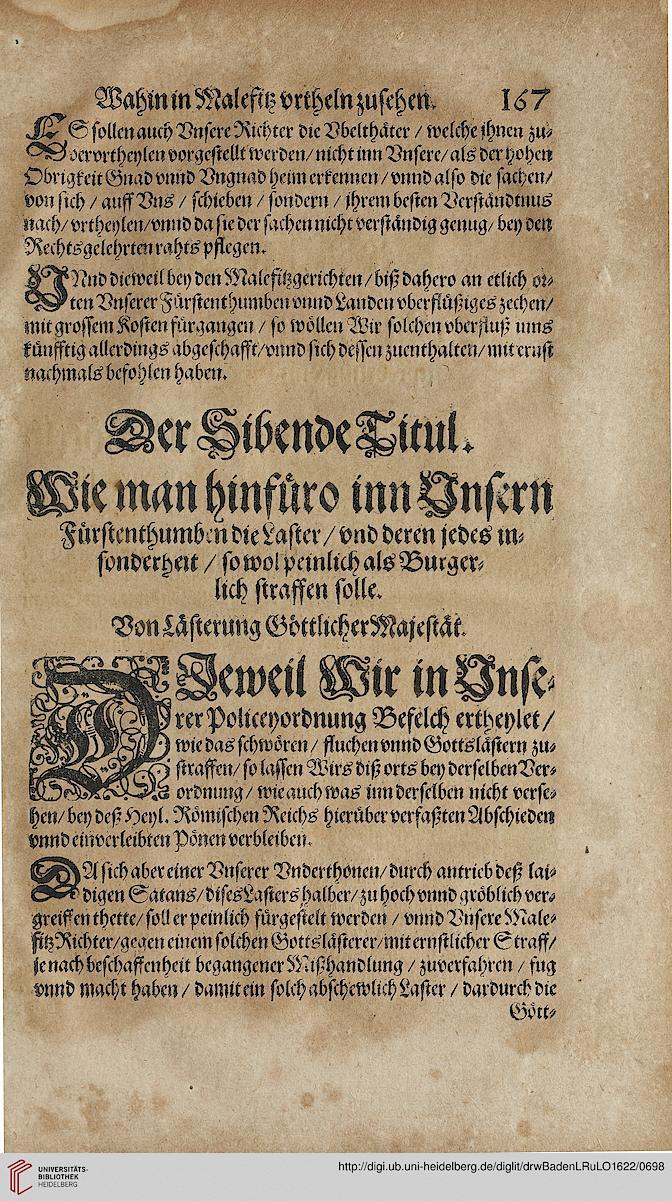 Wahin in Malefitz vrtheln zusehen. 167
ES sollen auch Vnsere Richter die Vbelthäter / welche jhnen zu-
oervrtheylen vorgestellt werden / nicht inn Vnsere / als der hohen
Obrigkeit Gnad vnnd Vngnad heim erkennen / vnnd also die sachen /
von sich / auff Vns / schieben / sondern / jhrem besten Verständtnus
nach / vrtheylen / vnnd da sie der sachen nicht verständig genug / bey den
Rechtsgelehrten rahts pflegen.
VNnd dieweil bey den Malefitzgerichten / biß dahero an etlich or-
ten Vnserer Fürstenthumben vnnd Landen vberflüßiges zechen /
mit grossem Kosten fürgangen / so wöllen Wir solchen vberfluß uns
künfftig allerdings abgeschafft / vnnd sich dessen zuenthalten / mit ernst
nachmals befohlen haben.
Der Sibende Titul.
Wie man hinfüro inn Vnsern
Fürstenthumben die Laster / vnd deren jedes in-
sonderheit / so wol peinlich als Burger-
lich straffen solle.
Von Lästerung Göttlicher Majestät.
DJeweil Wir in Vnse-
rer Policeyordnung Befelch ertheylet /
wie das schwören / fluchen vnnd Gottslästern zu-
straffen / so lassen Wirs diß orts bey derselben Ver-
ordnung / wie auch was inn derselben nicht verse-
hen / bey deß Heyl. Römischen Reichs hierüber verfaßten Abschieden
vnnd einverleibten Pönen verbleiben.
DA sich aber einer Vnserer Vnderthonen / durch antrieb deß lai-
digen Satans / dises Lasters halber / zu hoch vnnd gröblich ver-
greiffen thette / soll er peinlich fürgestelt werden / vnnd Vnsere Male-
fitz Richter / gegen einem solchen Gottslästerer / mit ernstlicher Straff /
je nach beschaffenheit begangener Mißhandlung / zuverfahren / fug
vnnd macht haben / damit ein solch abschewlich Laster / dardurch die
Gött-
UNIVERSITÄTS-
BIBLIOTHEK
HEIDELBERG
http://digi.ub.uni-heidelberg.de/diglit/drwBadenLRuLO1622/0698